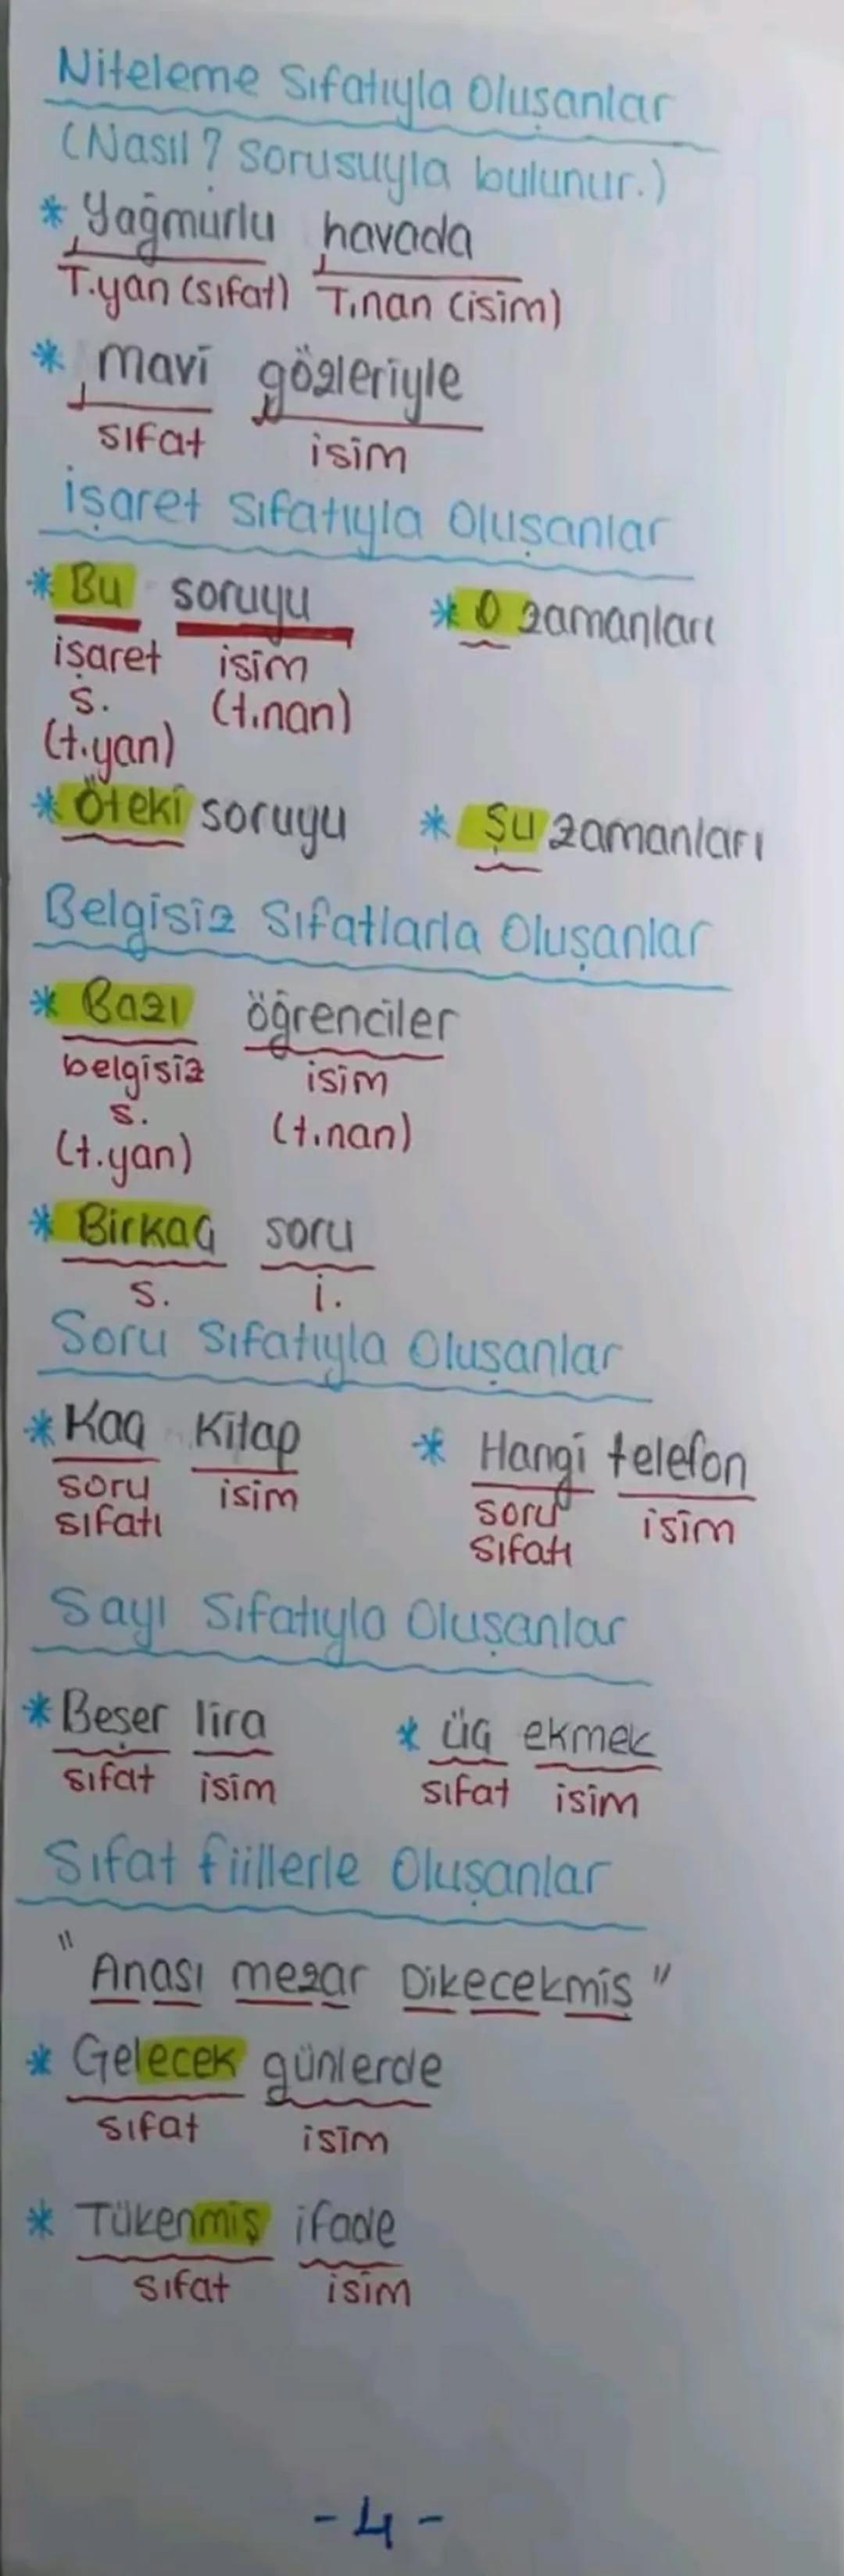 Niteleme Sıfatıyla Oluşanlar
(Nasıl? sorusuyla bulunur.)
* Yağmurlu havada
T.yan (sıfat) T.nan (isim)
* mavi gözleriyle
sıfat isim
işaret Sıfatıyla Oluşanlar
* Bu soruyu * O zamanları
işaret isim
s. (t.nan)
(t.yan)
* Öteki soruyu * Şu zamanları
Belgisiz Sıfatlarla Oluşanlar
* Bazı öğrenciler
belgisiz isim
s. (t.nan)
(t.yan)
* Birkaç soru
s. i.
Soru Sıfatıyla Oluşanlar
* Kaç Kitap * Hangi telefon
soru isim soru isim
sıfatı sıfatı
Sayı Sıfatıyla Oluşanlar
* Beşer lira * üç ekmek
sıfat isim sıfat isim
Sıfat fiillerle Oluşanlar
"Anası mezar Dikecekmiş"
* Gelecek günlerde
sıfat isim
* Tükenmiş ifade
sıfat isim
-4-